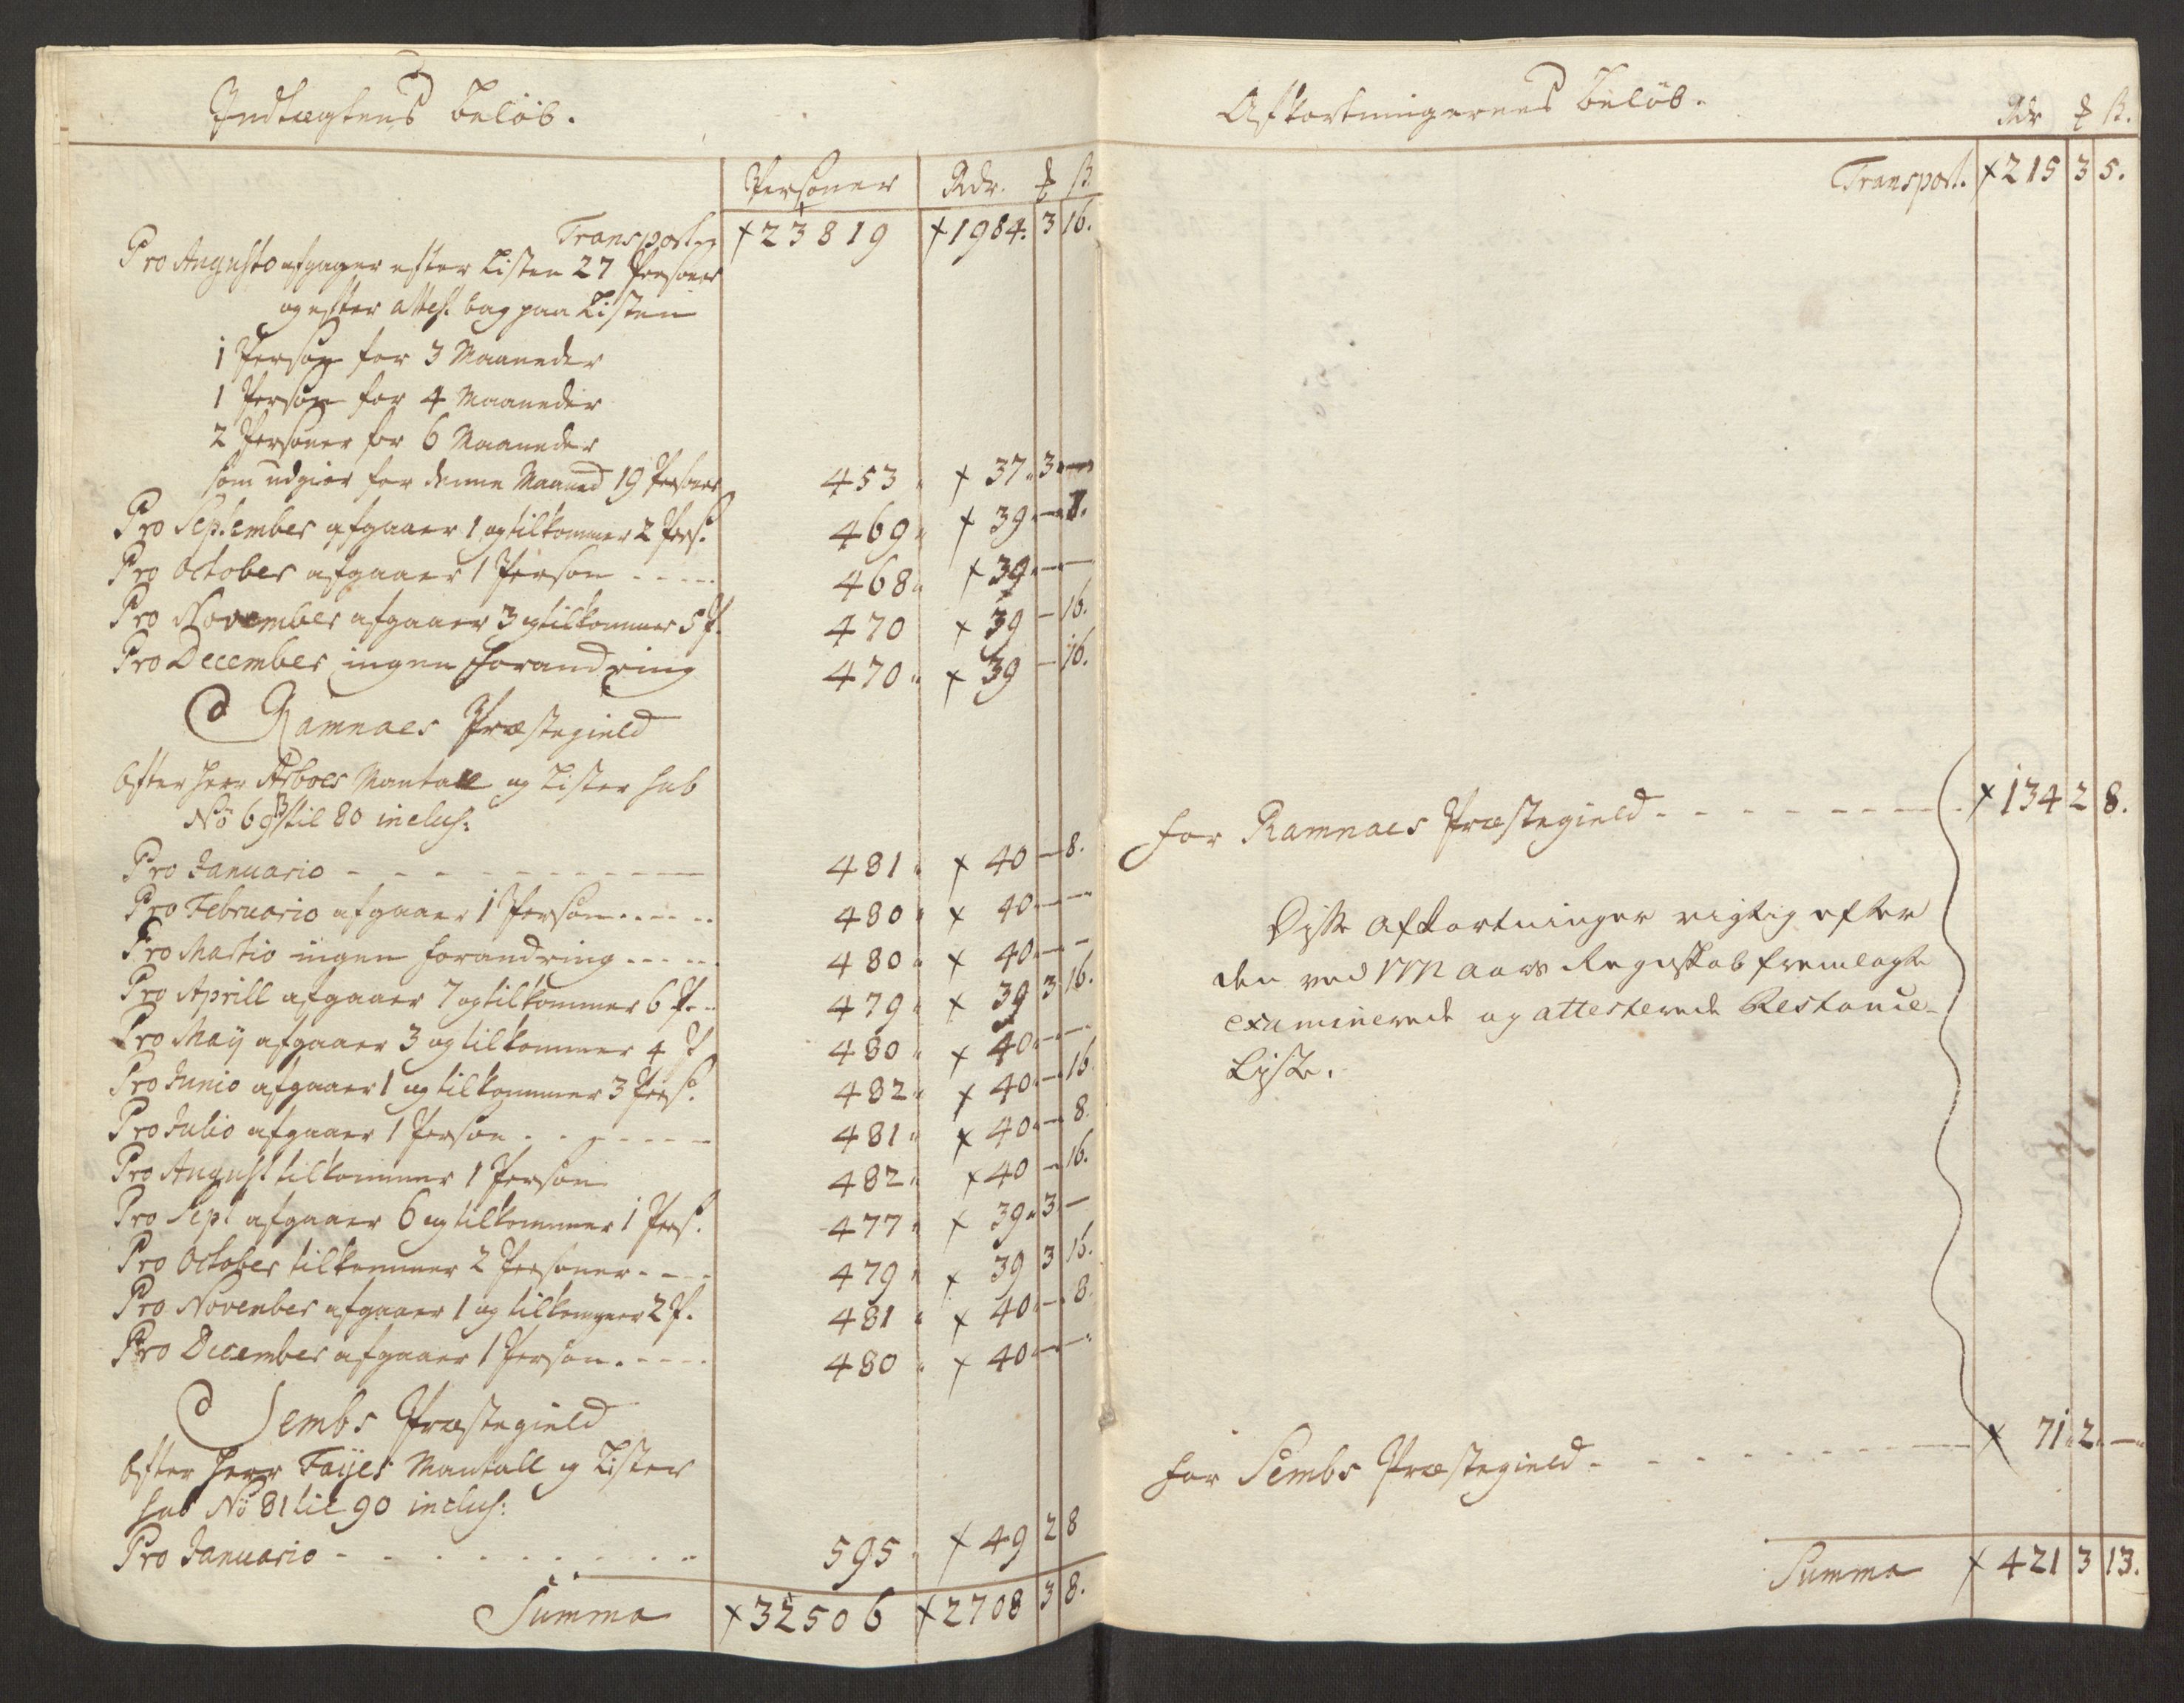 Indtægtens Beløb.
Personer Rdr. ß
Transporten +23819 +1984. 3 16.
Pro Augusto afgager efter Listen 27 Personer
og efter attest bag paa Listen
1 Person for 3 Maaneder
1 Person for 4 Maaneder
2 Personer for 6 Maaneder
som udgiør for denne Maaned 19 Personer 453 + 37 3 —
Pro September afgaaer 1 og tilkommer 2 Pers: 469 + 39 — 8.
Pro October afgaaer 1 Person 468 + 39 — —
Pro November afgaaer 3 og tilkommer 5 P. 470 + 39 — 16.
Pro December ingen forandring 470 + 39 — 16.
Ramnaes Præstegield
Efter Herr Asboes Mantall og Lister sub
No 69 til 80 inclus:
Pro Januario 481 + 40 — 8.
Pro Februario afgaaer 1 Person 480 + 40 — —
Pro Martio ingen forandring 480 + 40 — —
Pro Aprill afgaaer 7 og tilkommer 6 P. 479 + 39 3 16.
Pro Maij afgaaer 3 og tilkommer 4 P 480 + 40 — —
Pro Junio afgaaer 1 og tilkommer 3 Pers: 482 + 40 — 16
Pro Julio afgaaer 1 Person 481 + 40 — 8.
Pro August tilkommer 1 Person 482 + 40 — 16.
Pro Sept afgaaer 6 og tilkommer 1 Pers. 477 + 39 3 —
Pro October tilkommer 2 Personer 479 + 39 3 16.
Pro November afgaaer 1 og tilkommer 2 P. 481 + 40 — 8
Pro December afgaaer 1 Person 480 + 40 — —
Sembs Præstegield
Efter Herr Faijes Mantall og Lister
sub No 81 til 90 inclus:
Pro Januario 595 + 49 2 8
Summa +32506 +2708 3 8.
Afkortningernes Beløb.
Rdr ß.
Transport. +215 3 5.
for Ramnaes Præstegield +134 2 8.
Disse Afkortninger rigtig efter
den ved 1772 aars Regnskab fremlagte
examinerede og attesterede Restance-
Liste.
for Sembs Præstegield + 71 2 —
Summa + 421 3 13.